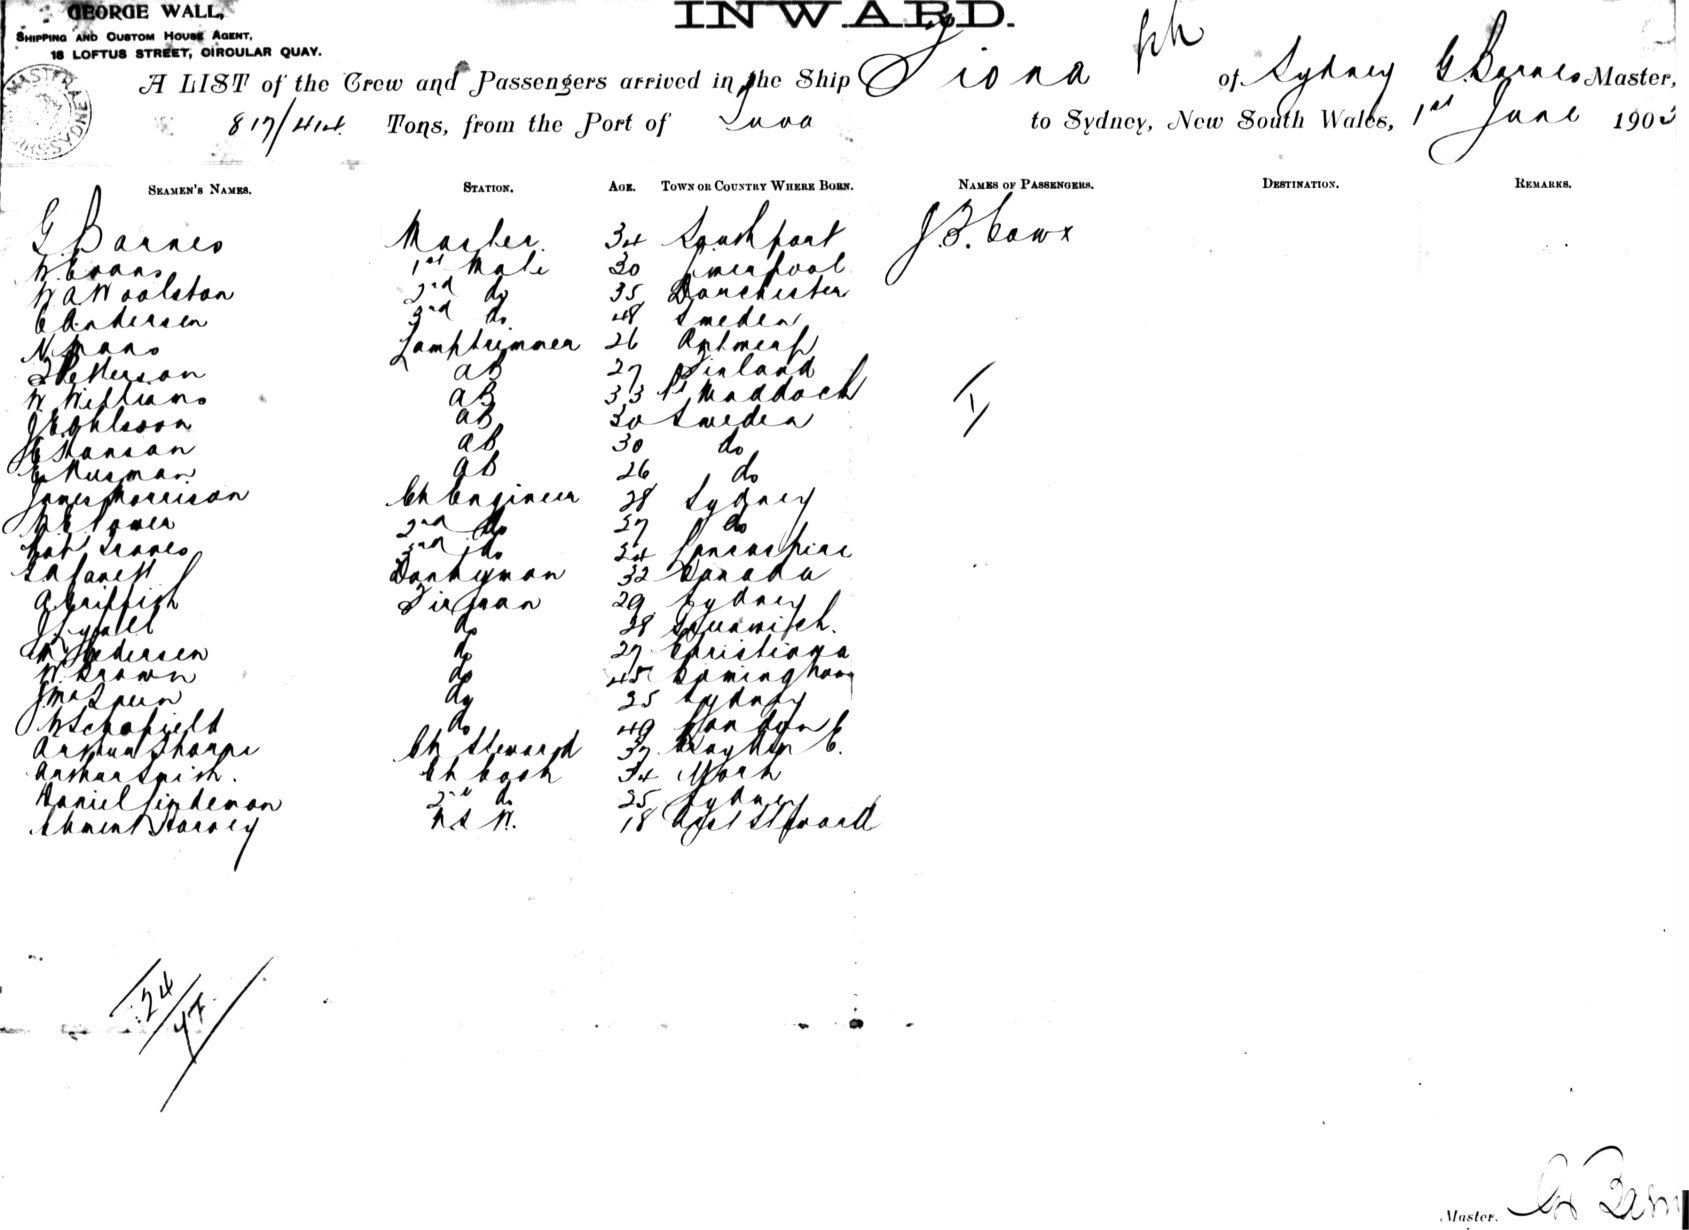 GEORGE WALL,
SHIPPING AND CUSTOM HOUSE AGENT,
18 LOFTUS STREET, CIRCULAR QUAY.
INWARD.
A LIST of the Crew and Passengers arrived in the Ship Fiona of Sydney G Barnes Master,
817/414 Tons, from the Port of Suva to Sydney, New South Wales, 1st June 190
SEAMEN'S NAMES. STATION. AGE. TOWN OR COUNTRY WHERE BORN. NAMES OF PASSENGERS. DESTINATION. REMARKS.
G Barnes Master. 34 Southport J.F. Cowx
W. Evans 1st Mate 30 Liverpool
W A Woolston 2nd do 35 Dorchester
C Andersen 3rd do 48 Sweden
N. Maas Lamptrimmer 26 Antwerp
Petterson AB 27 Finland
W Williams AB 33 Pt Maddock
J E Ohlsson AB 30 Sweden
Hanson AB 30 do
Musman AB 26 do
James Morrison Ch Engineer 28 Sydney
W E Power 2nd do 27 do
Robt Graves 3rd do 24 Lancashire
Donkeyman 32 Canada
A Griffith Fireman 29 Sydney
J Lyall do 28
Pedersen do 27 Christiana
W. Brown do 45 Birmingham
do 25 Sydney
W Schofield do 49 London E
Arthur Tharpe Ch Steward 37 Croydon E.
Arthur Smith. Ch Cook 34
Daniel Lindeman 2nd do 25 Sydney
Harvey N S W. 18 Asst Steward
24/47
Master.